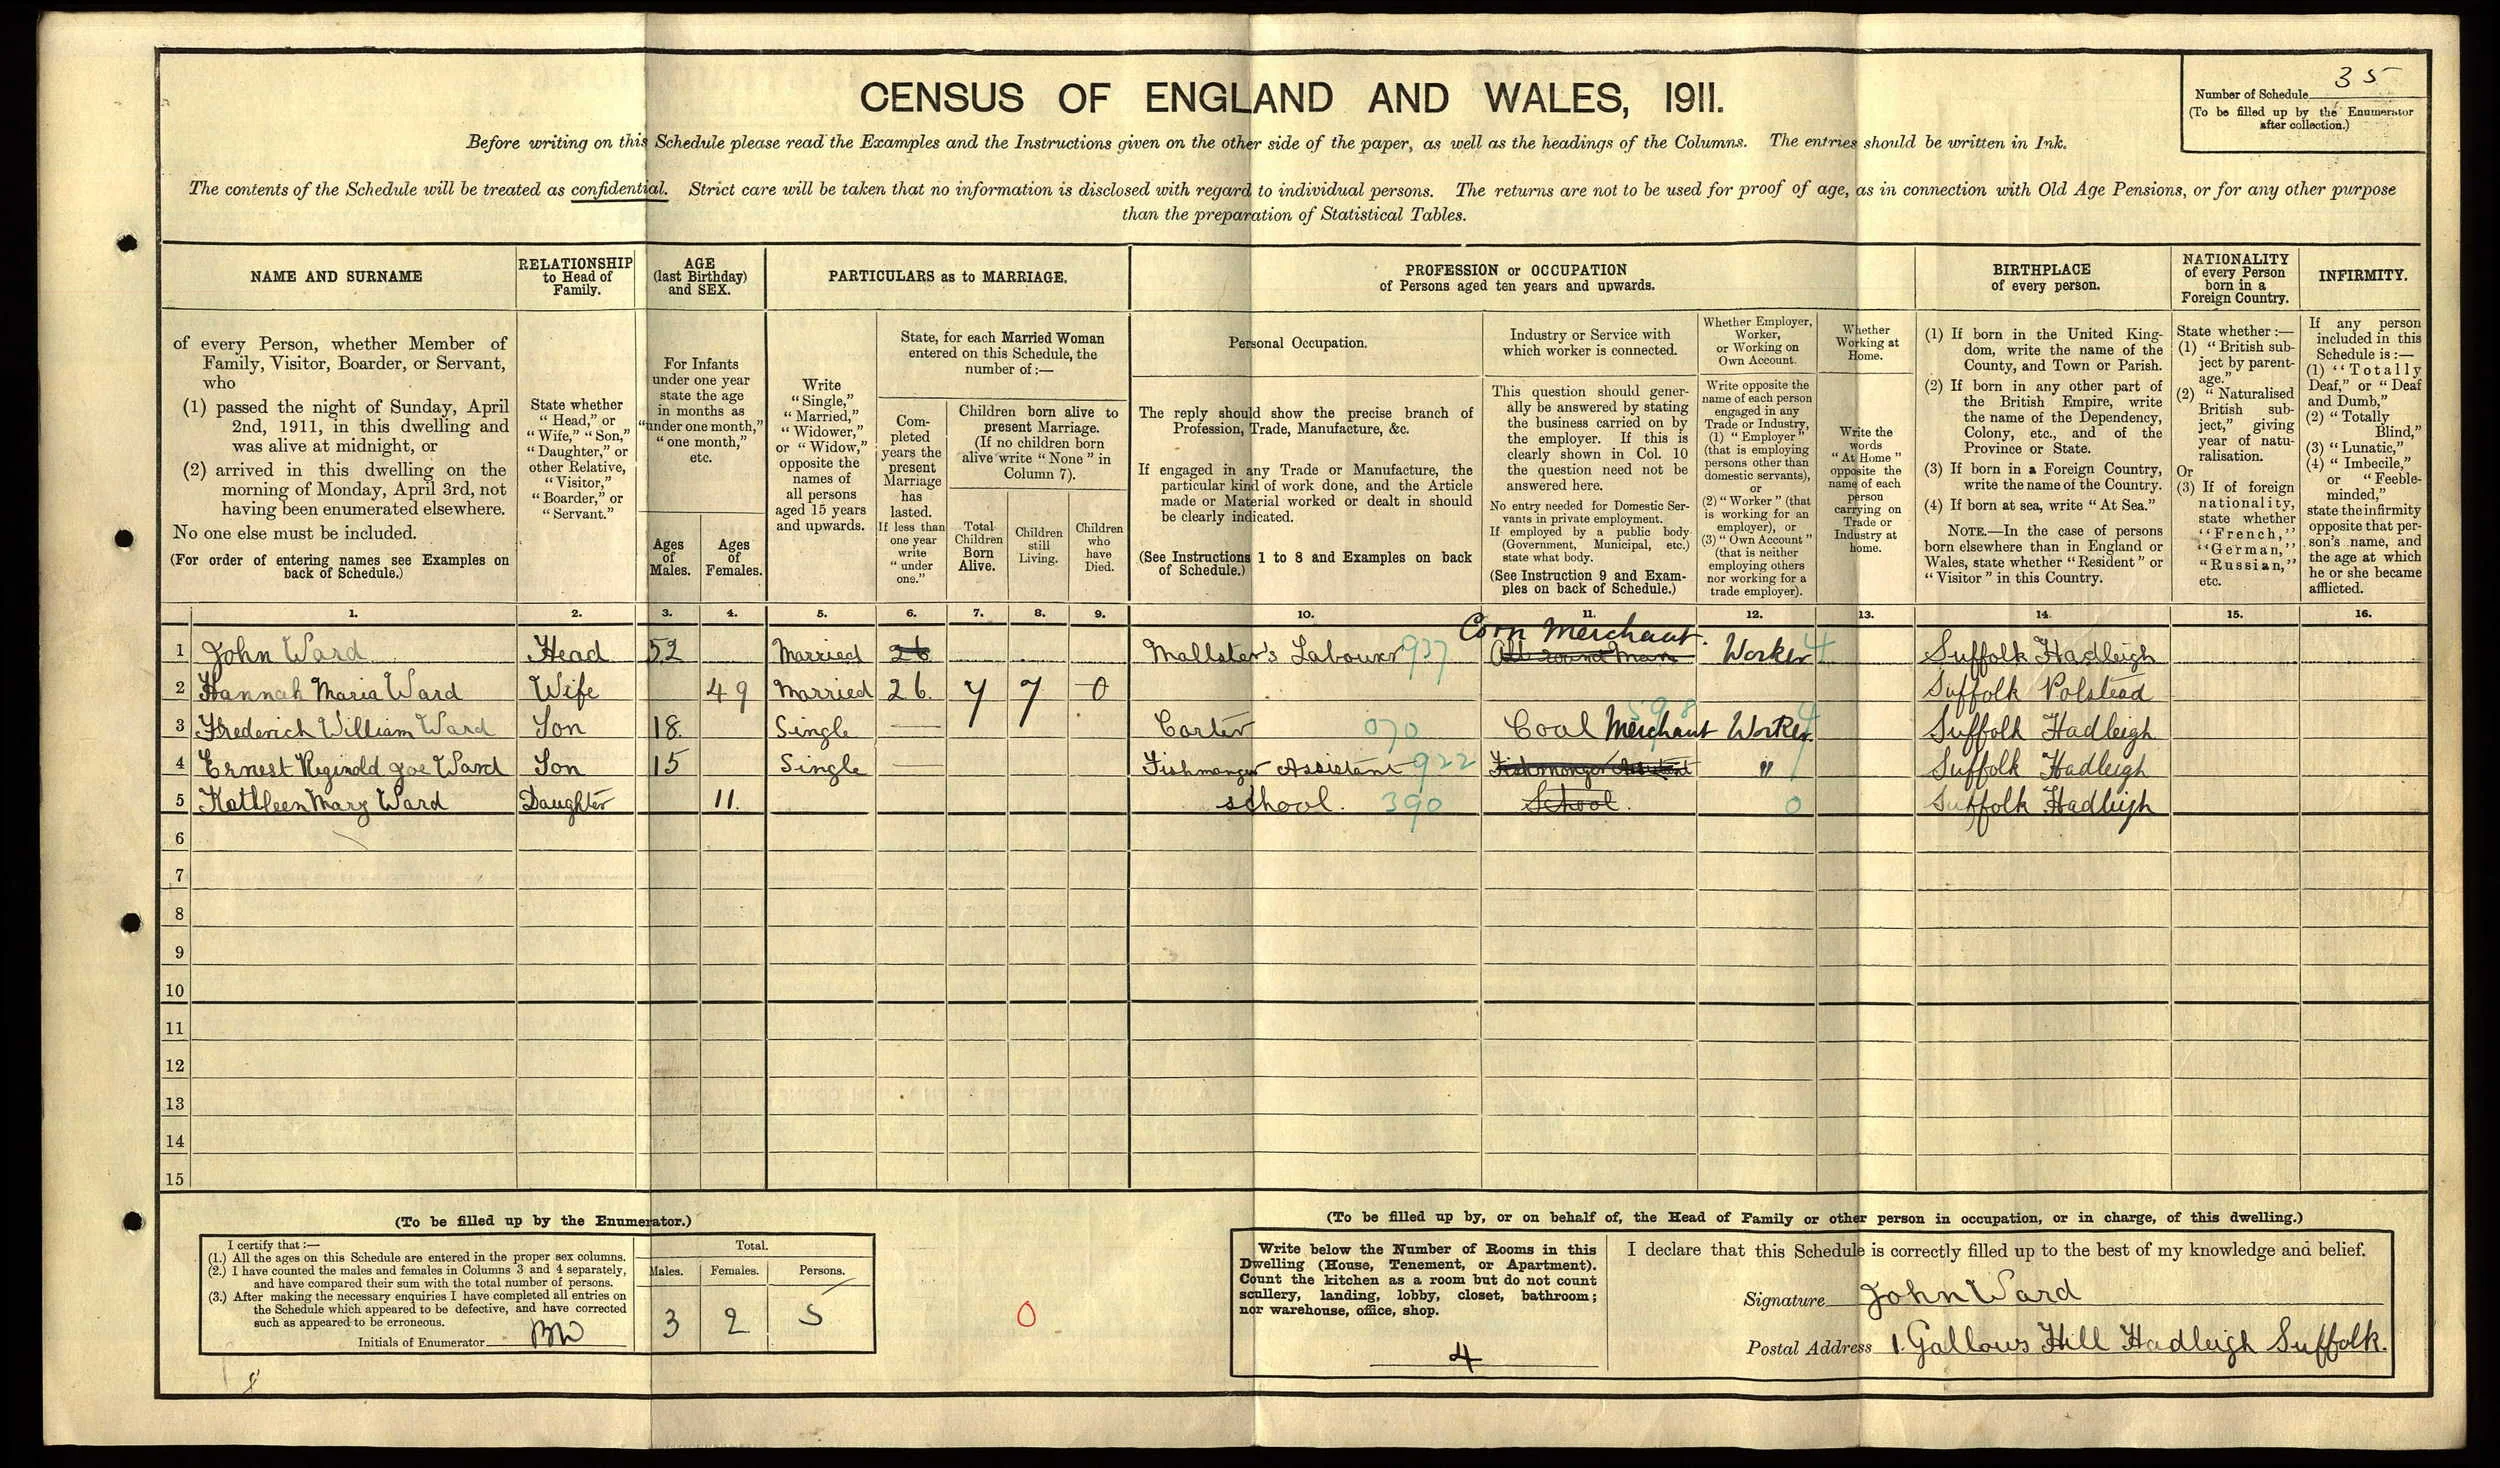 CENSUS OF ENGLAND AND WALES, 1911.
Number of Schedule 35
(To be filled up by the Enumerator
after collection.)
Before writing on this Schedule please read the Examples and the Instructions given on the other side of the paper, as well as the headings of the Columns. The entries should be written in Ink.
The contents of the Schedule will be treated as confidential. Strict care will be taken that no information is disclosed with regard to individual persons. The returns are not to be used for proof of age, as in connection with Old Age Pensions, or for any other purpose
than the preparation of Statistical Tables.
NAME AND SURNAME
of every Person, whether Member of
Family, Visitor, Boarder, or Servant,
who
(1) passed the night of Sunday, April
2nd, 1911, in this dwelling and
was alive at midnight, or
(2) arrived in this dwelling on the
morning of Monday, April 3rd, not
having been enumerated elsewhere.
No one else must be included.
(For order of entering names see Examples on
back of Schedule.)
RELATIONSHIP
to Head of
Family.
State whether
"Head," or
"Wife," "Son,"
"Daughter," or
other Relative,
"Visitor,"
"Boarder," or
"Servant."
AGE
(last Birthday)
and SEX.
For Infants
under one year
state the age
in months as
"under one month,"
"one month,"
etc.
Ages
of
Males.
Ages
of
Females.
PARTICULARS as to MARRIAGE.
Write
"Single,"
"Married,"
"Widower,"
or "Widow,"
opposite the
names of
all persons
aged 15 years
and upwards.
State, for each Married Woman
entered on this Schedule, the
number of:—
Com-
pleted
years the
present
Marriage
has
lasted.
If less than
one year
write
"under
one."
Children born alive to
present Marriage.
(If no children born
alive write "None" in
Column 7).
Total
Children
Born
Alive.
Children
still
Living.
Children
who
have
Died.
PROFESSION or OCCUPATION
of Persons aged ten years and upwards.
Personal Occupation.
The reply should show the precise branch of
Profession, Trade, Manufacture, &c.
If engaged in any Trade or Manufacture, the
particular kind of work done, and the Article
made or Material worked or dealt in should
be clearly indicated.
(See Instructions 1 to 8 and Examples on back
of Schedule.)
Industry or Service with
which worker is connected.
This question should gener-
ally be answered by stating
the business carried on by
the employer. If this is
clearly shown in Col. 10
the question need not be
answered here.
No entry needed for Domestic Ser-
vants in private employment.
If employed by a public body
(Government, Municipal, etc.)
state what body.
(See Instruction 9 and Exam-
ples on back of Schedule.)
Whether Employer,
Worker,
or Working on
Own Account.
Write opposite the
name of each person
engaged in any
Trade or Industry,
(1) "Employer"
(that is employing
persons other than
domestic servants),
or
(2) "Worker" (that
is working for an
employer), or
(3) "Own Account"
(that is neither
employing others
nor working for a
trade employer).
Whether
Working at
Home.
Write the
words
"At Home"
opposite the
name of each
person
carrying on
Trade or
Industry at
home.
BIRTHPLACE
of every person.
(1) If born in the United King-
dom, write the name of the
County, and Town or Parish.
(2) If born in any other part of
the British Empire, write
the name of the Dependency,
Colony, etc., and of the
Province or State.
(3) If born in a Foreign Country,
write the name of the Country.
(4) If born at sea, write "At Sea."
NOTE.—In the case of persons
born elsewhere than in England or
Wales, state whether "Resident" or
"Visitor" in this Country.
NATIONALITY
of every Person
born in a
Foreign Country.
State whether:—
(1) "British sub-
ject by parent-
age."
(2) "Naturalised
British sub-
ject," giving
year of natu-
ralisation.
Or
(3) If of foreign
nationality,
state whether
"French,"
"German,"
"Russian,"
etc.
INFIRMITY.
If any person
included in this
Schedule is:—
(1) "Totally
Deaf," or "Deaf
and Dumb,"
(2) "Totally
Blind,"
(3) "Lunatic,"
(4) "Imbecile,"
or "Feeble-
minded,"
state the infirmity
opposite that per-
son's name, and
the age at which
he or she became
afflicted.
1. 2. 3. 4. 5. 6. 7. 8. 9. 10. 11. 12. 13. 14. 15. 16.
Corn Merchant.
1 John Ward Head 52 Married 26 Maltster's Labourer 937 All round Man Worker 4 Suffolk Hadleigh
2 Hannah Maria Ward Wife 49 Married 26. 7 7 0 Suffolk Polstead
598
3 Frederich William Ward Son 18. Single — Carter 070 Coal Merchant Worker. 4 Suffolk Hadleigh
4 Ernest Reginold Joe Ward Son 15 Single — Fishmonger Assistant 922 Fishmonger Assistant " Suffolk Hadleigh
5 Kathleen Mary Ward Daughter 11. school. 390 School. 0 Suffolk Hadleigh
6
7
8
9
10
11
12
13
14
15
(To be filled up by the Enumerator.)
I certify that:—
(1.) All the ages on this Schedule are entered in the proper sex columns.
(2.) I have counted the males and females in Columns 3 and 4 separately,
and have compared their sum with the total number of persons.
(3.) After making the necessary enquiries I have completed all entries on
the Schedule which appeared to be defective, and have corrected
such as appeared to be erroneous.
Initials of Enumerator
Total.
Males. Females. Persons.
3 2 5
0
(To be filled up by, or on behalf of, the Head of Family or other person in occupation, or in charge, of this dwelling.)
Write below the Number of Rooms in this
Dwelling (House, Tenement, or Apartment).
Count the kitchen as a room but do not count
scullery, landing, lobby, closet, bathroom;
nor warehouse, office, shop.
4
I declare that this Schedule is correctly filled up to the best of my knowledge and belief.
Signature John Ward
Postal Address 1. Gallows Hill Hadleigh Suffolk.